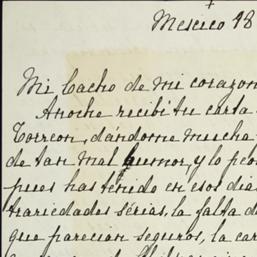 Mexico 18
Mi Cacho de mi corazon
Anoche recibí tu carta
Torreon, dándome mucha
de tan mal humor, y lo peor
pues has tenido en esos dias
trariedades sérias, la falta d
que parecian seguros, la car